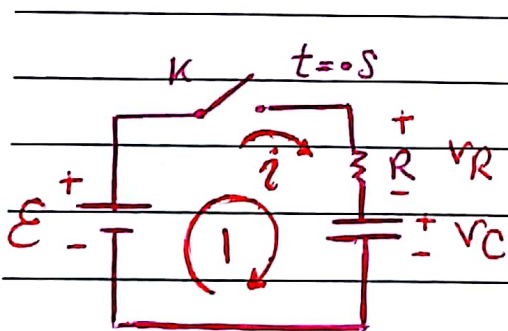 K t=0S
+
i R VR
-
+
ε
-
1
+
VC
-